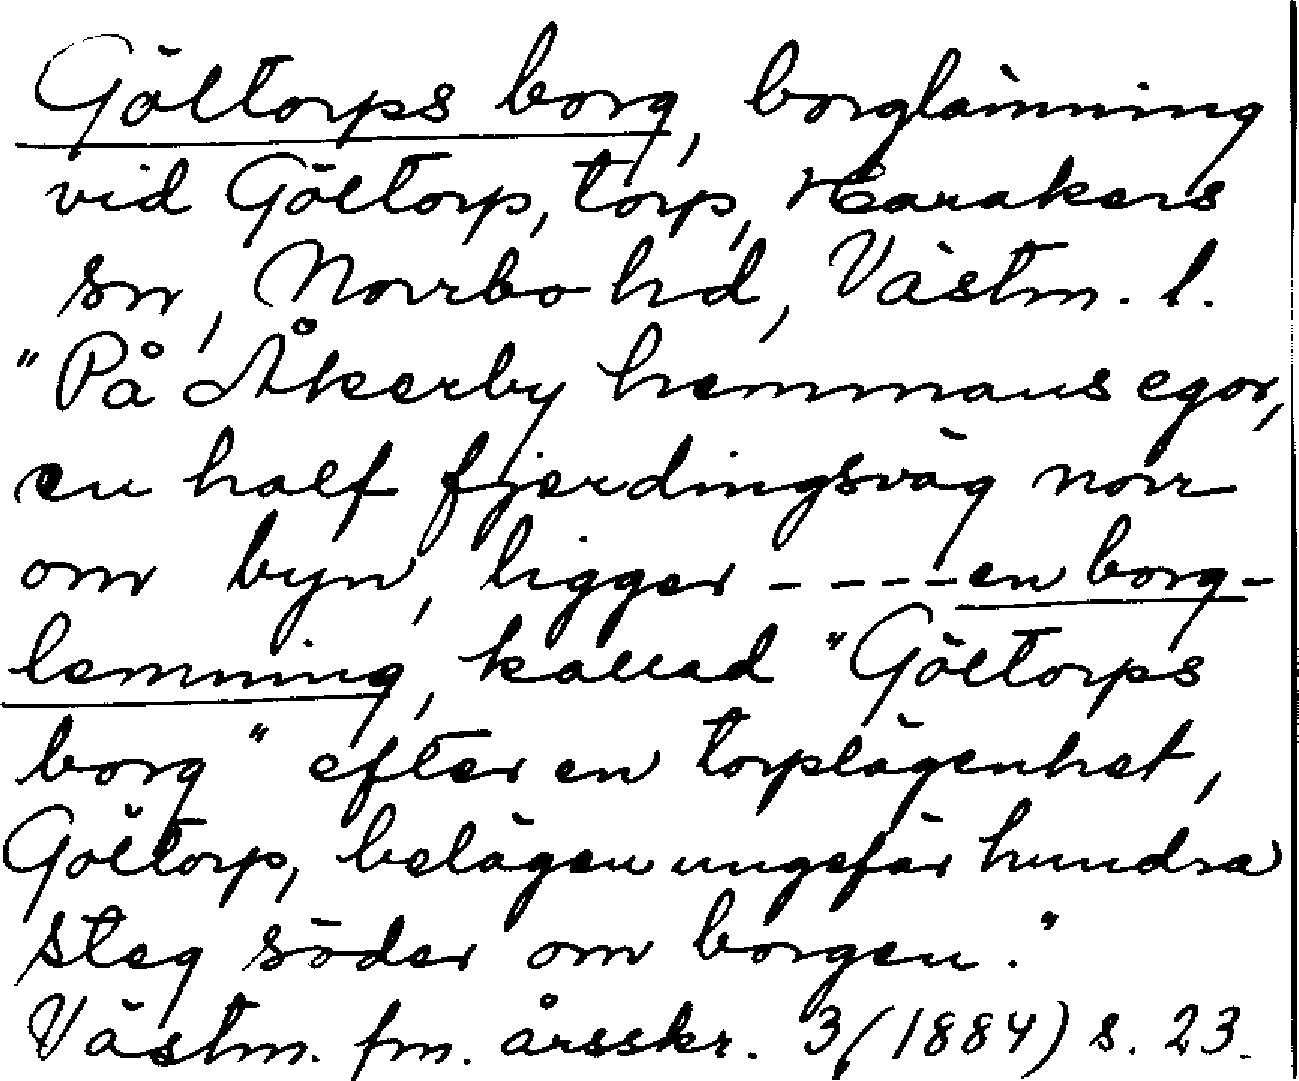 Göltorps borg, borglämning
vid Göltorp, torp, Harakers
sn, Norrbo hd, Västm. l.
"På Åkerby hemmans egor,
en half fjerdingsväg norr
om byn, ligger - - - - en borg-
lemning, kallad "Göltorps
borg" efter en torplägenhet,
Göltorp, belägen ungefär hundra
steg söder om borgen."
Västm. fm. årsskr. 3 (1884) s. 23.